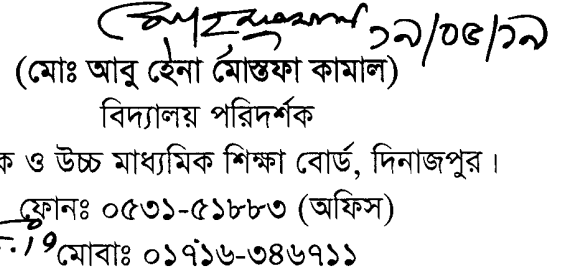 ১৯/০৫/১৯
(মোঃ আবু হেনা মোস্তফা কামাল)
বিদ্যালয় পরিদর্শক
ক ও উচ্চ মাধ্যমিক শিক্ষা বোর্ড, দিনাজপুর।
ফোনঃ ০৫৩১-৫১৮৮৩ (অফিস)
মোবাঃ ০১৭১৬-৩৪৬৭১১